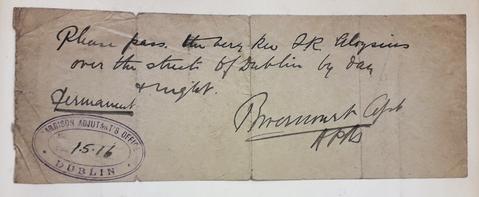 Please pass the very Rev Fr Aloysius
over the streets of Dublin by day
& night.
Permanent
GARRISON ADJUTANT'S OFFICE
1·5·16
DUBLIN